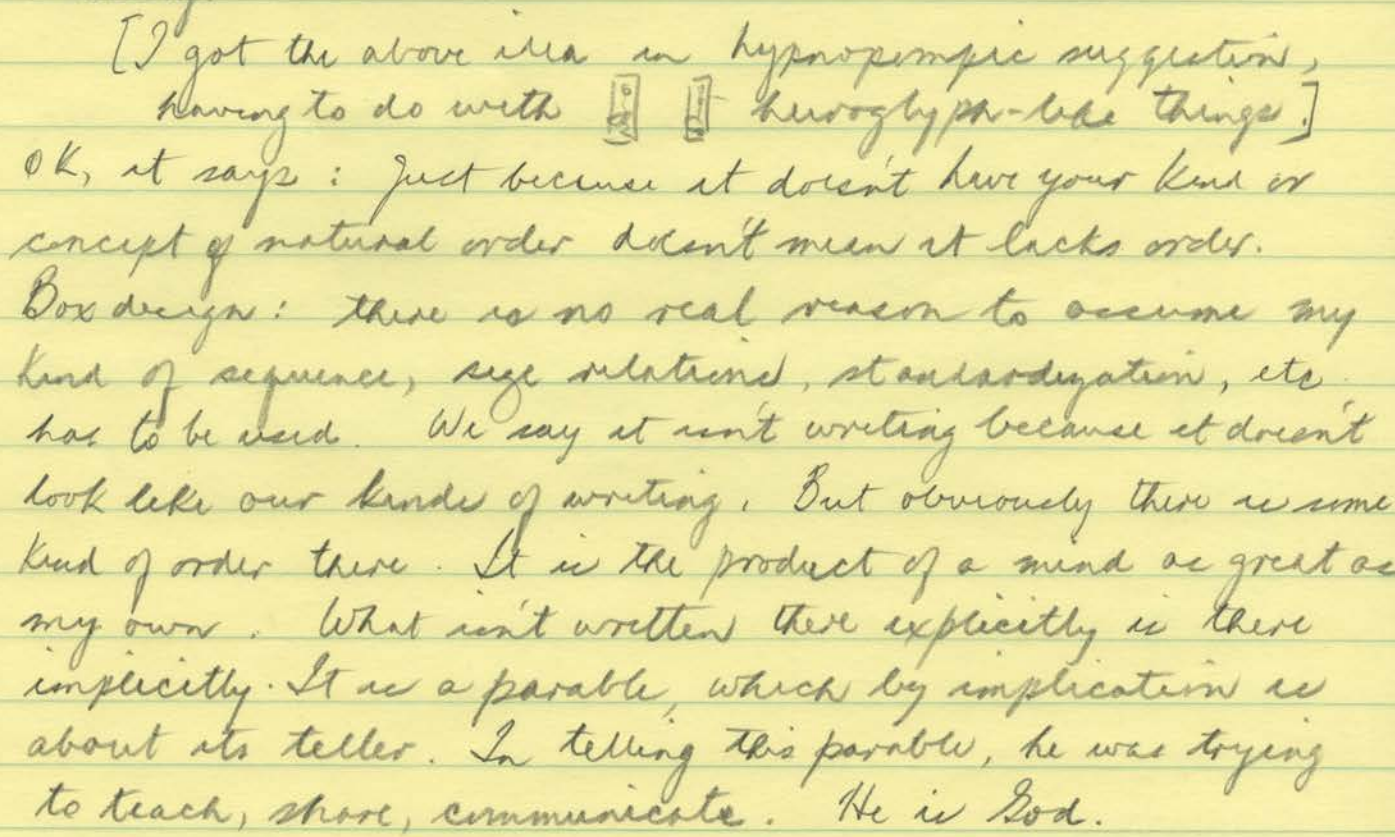 [I got the above idea in hypnopompic suggestion,
having to do with hieroglyph-like things.]
OK, it says: Just because it doesn't have your kind or
concept of natural order doesn't mean it lacks order.
Box design: there is no real reason to assume my
kind of sequence, size relations, standardization, etc.
has to be used. We say it isn't writing because it doesn't
look like our kinds of writing. But obviously there is some
kind of order there. It is the product of a mind as great as
my own. What isn't written there explicitly is there
implicitly. It is a parable, which by implication is
about its teller. In telling this parable, he was trying
to teach, share, communicate. He is God.